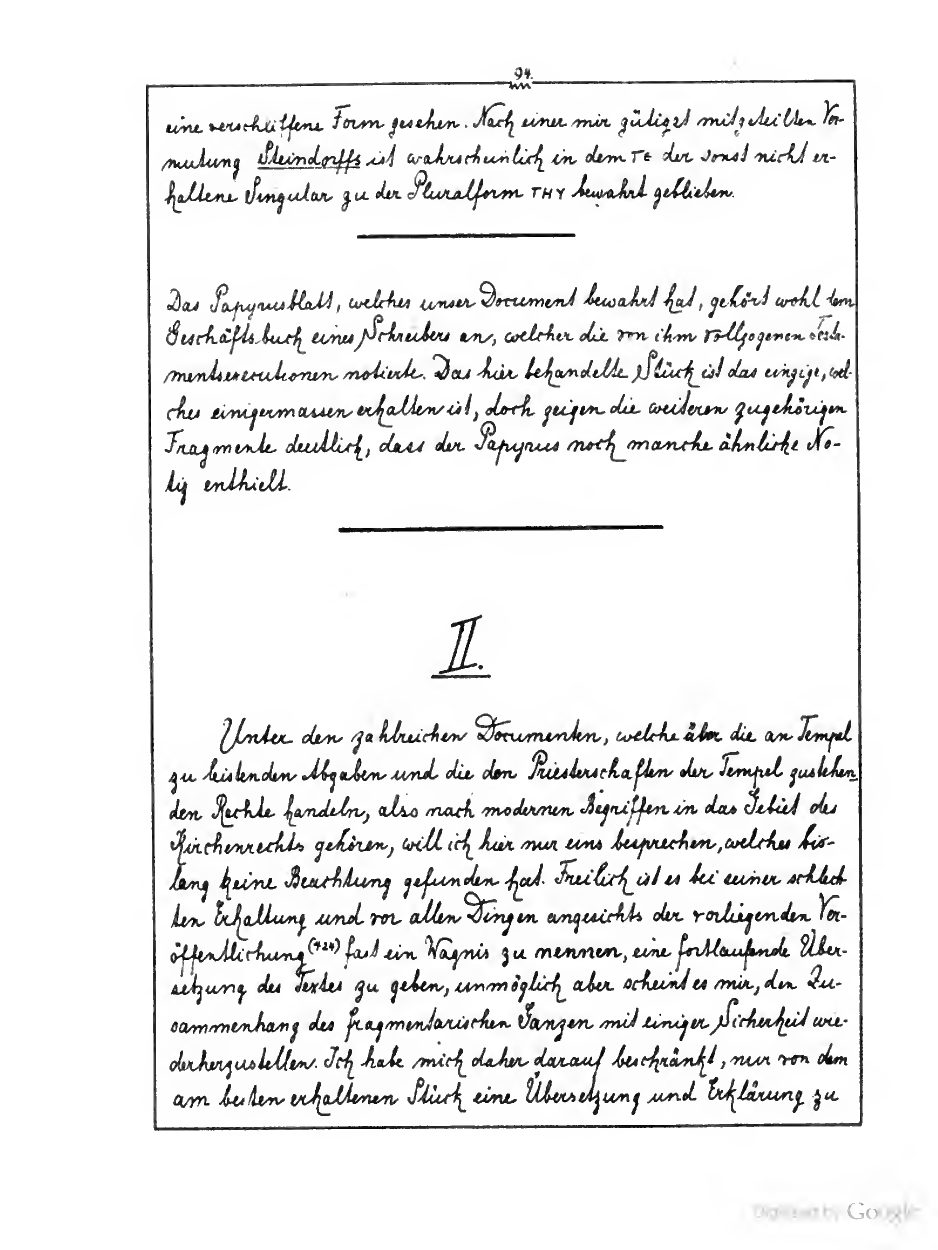 94.
eine verschliffene Form gesehen. Nach einer mir gütigst mitgeteilten Ver-
mutung Steindorffs ist wahrscheinlich in dem ΤΕ der sonst nicht er-
haltene Singular zu der Pluralform ΤΗΥ bewahrt geblieben.
Das Papyrusblatt, welches unser Document bewahrt hat, gehört wohl dem
Geschäftsbuch eines Schreibers an, welcher die von ihm vollzogenen Testa-
mentsexecutionen notierte. Das hier behandelte Stück ist das einzige, wel-
ches einigermassen erhalten ist, doch zeigen die weiteren zugehörigen
Fragmente deutlich, dass der Papyrus noch manche ähnliche No-
tiz enthielt.
II.
Unter den zahlreichen Documenten, welche über die an Tempel
zu leistenden Abgaben und die den Priesterschaften der Tempel zustehen-
den Rechte handeln, also nach modernen Begriffen in das Gebiet des
Kirchenrechts gehören, will ich hier nur eins besprechen, welches bis-
lang keine Beachtung gefunden hat. Freilich ist es bei seiner schlech-
ten Erhaltung und vor allen Dingen angesichts der vorliegenden Ver-
öffentlichung (424) fast ein Wagnis zu nennen, eine fortlaufende Über-
setzung des Textes zu geben, unmöglich aber scheint es mir, den Zu-
sammenhang des fragmentarischen Ganzen mit einiger Sicherheit wie-
derherzustellen. Ich habe mich daher darauf beschränkt, nur von dem
am besten erhaltenen Stück eine Übersetzung und Erklärung zu
Digitized by Google